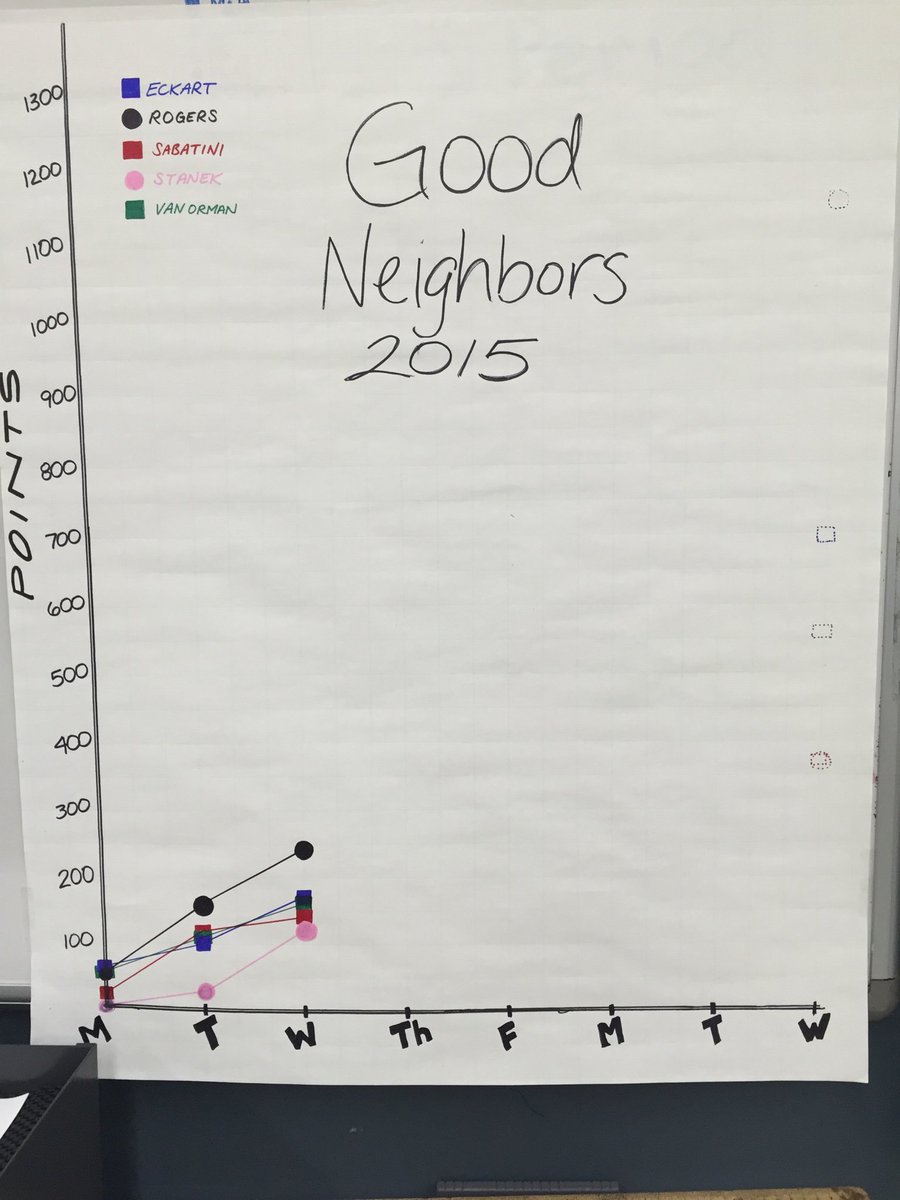 ECKART
ROGERS
SABATINI
STANEK
VAN ORMAN
Good
Neighbors
2015
POINTS
1300
1200
1100
1000
900
800
700
600
500
400
300
200
100
M T W Th F M T W